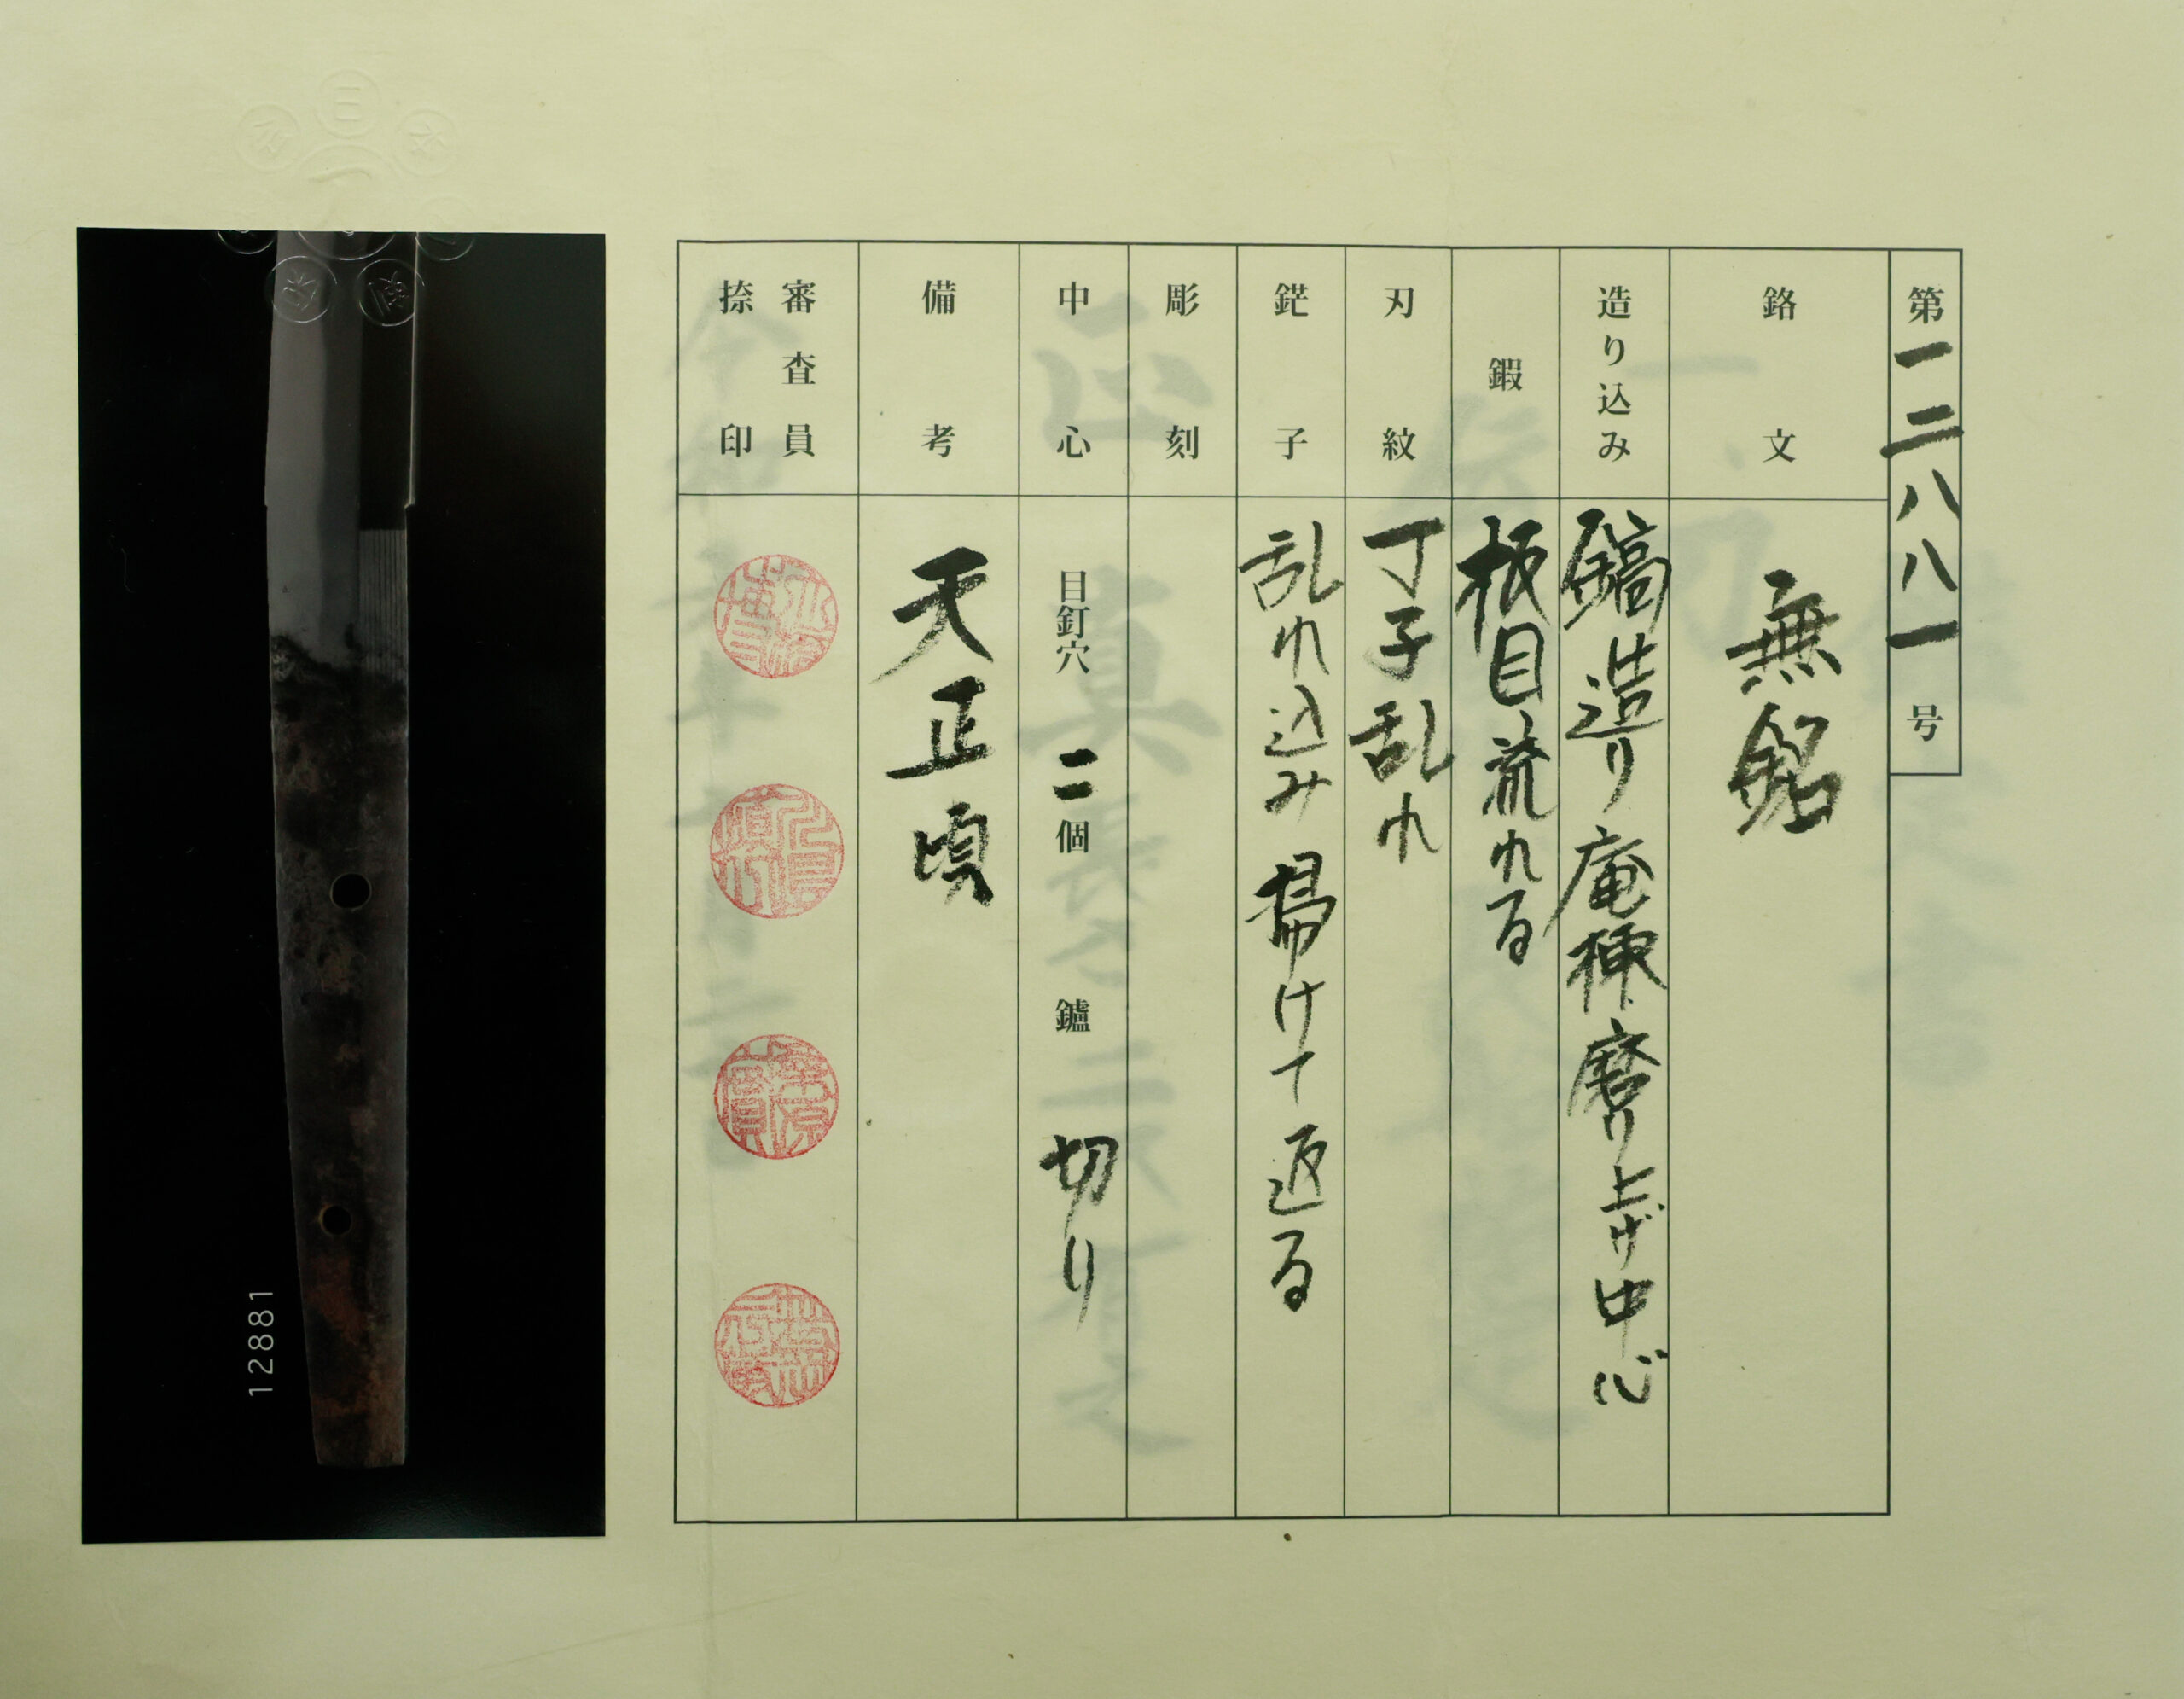 第一二八八一号
銘文 無銘
造り込み 鎬造り庵棟磨り上げ中心
鍜 板目流れる
刃紋 丁子乱れ
鋩子 乱れ込み掃けて返る
彫刻
中心 目釘穴 二個 鑢 切り
備考 天正頃
審査員
捺印
12881